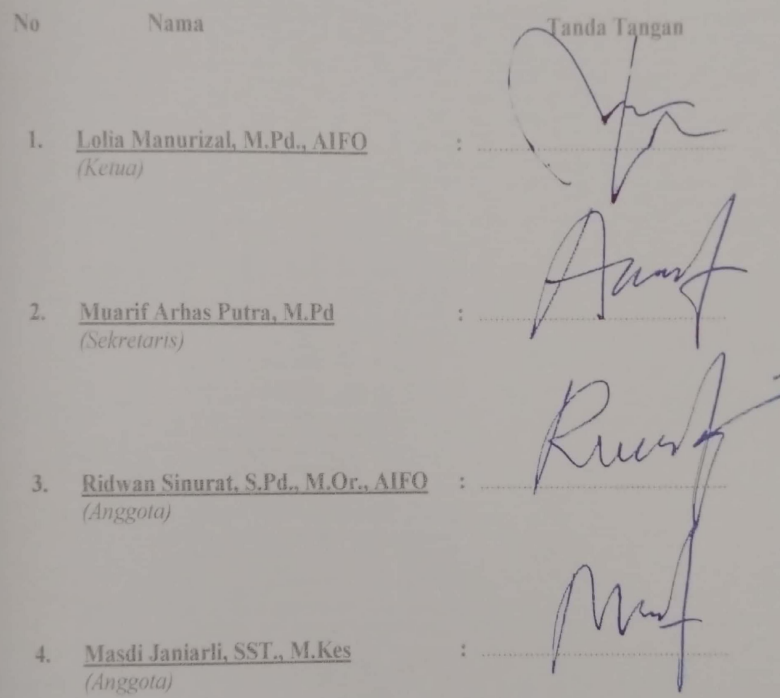 No Nama Tanda Tangan
1. Lolia Manurizal, M.Pd., AIFO :
(Ketua)
2. Muarif Arhas Putra, M.Pd :
(Sekretaris)
3. Ridwan Sinurat, S.Pd., M.Or., AIFO :
(Anggota)
4. Masdi Janiarli, SST., M.Kes :
(Anggota)